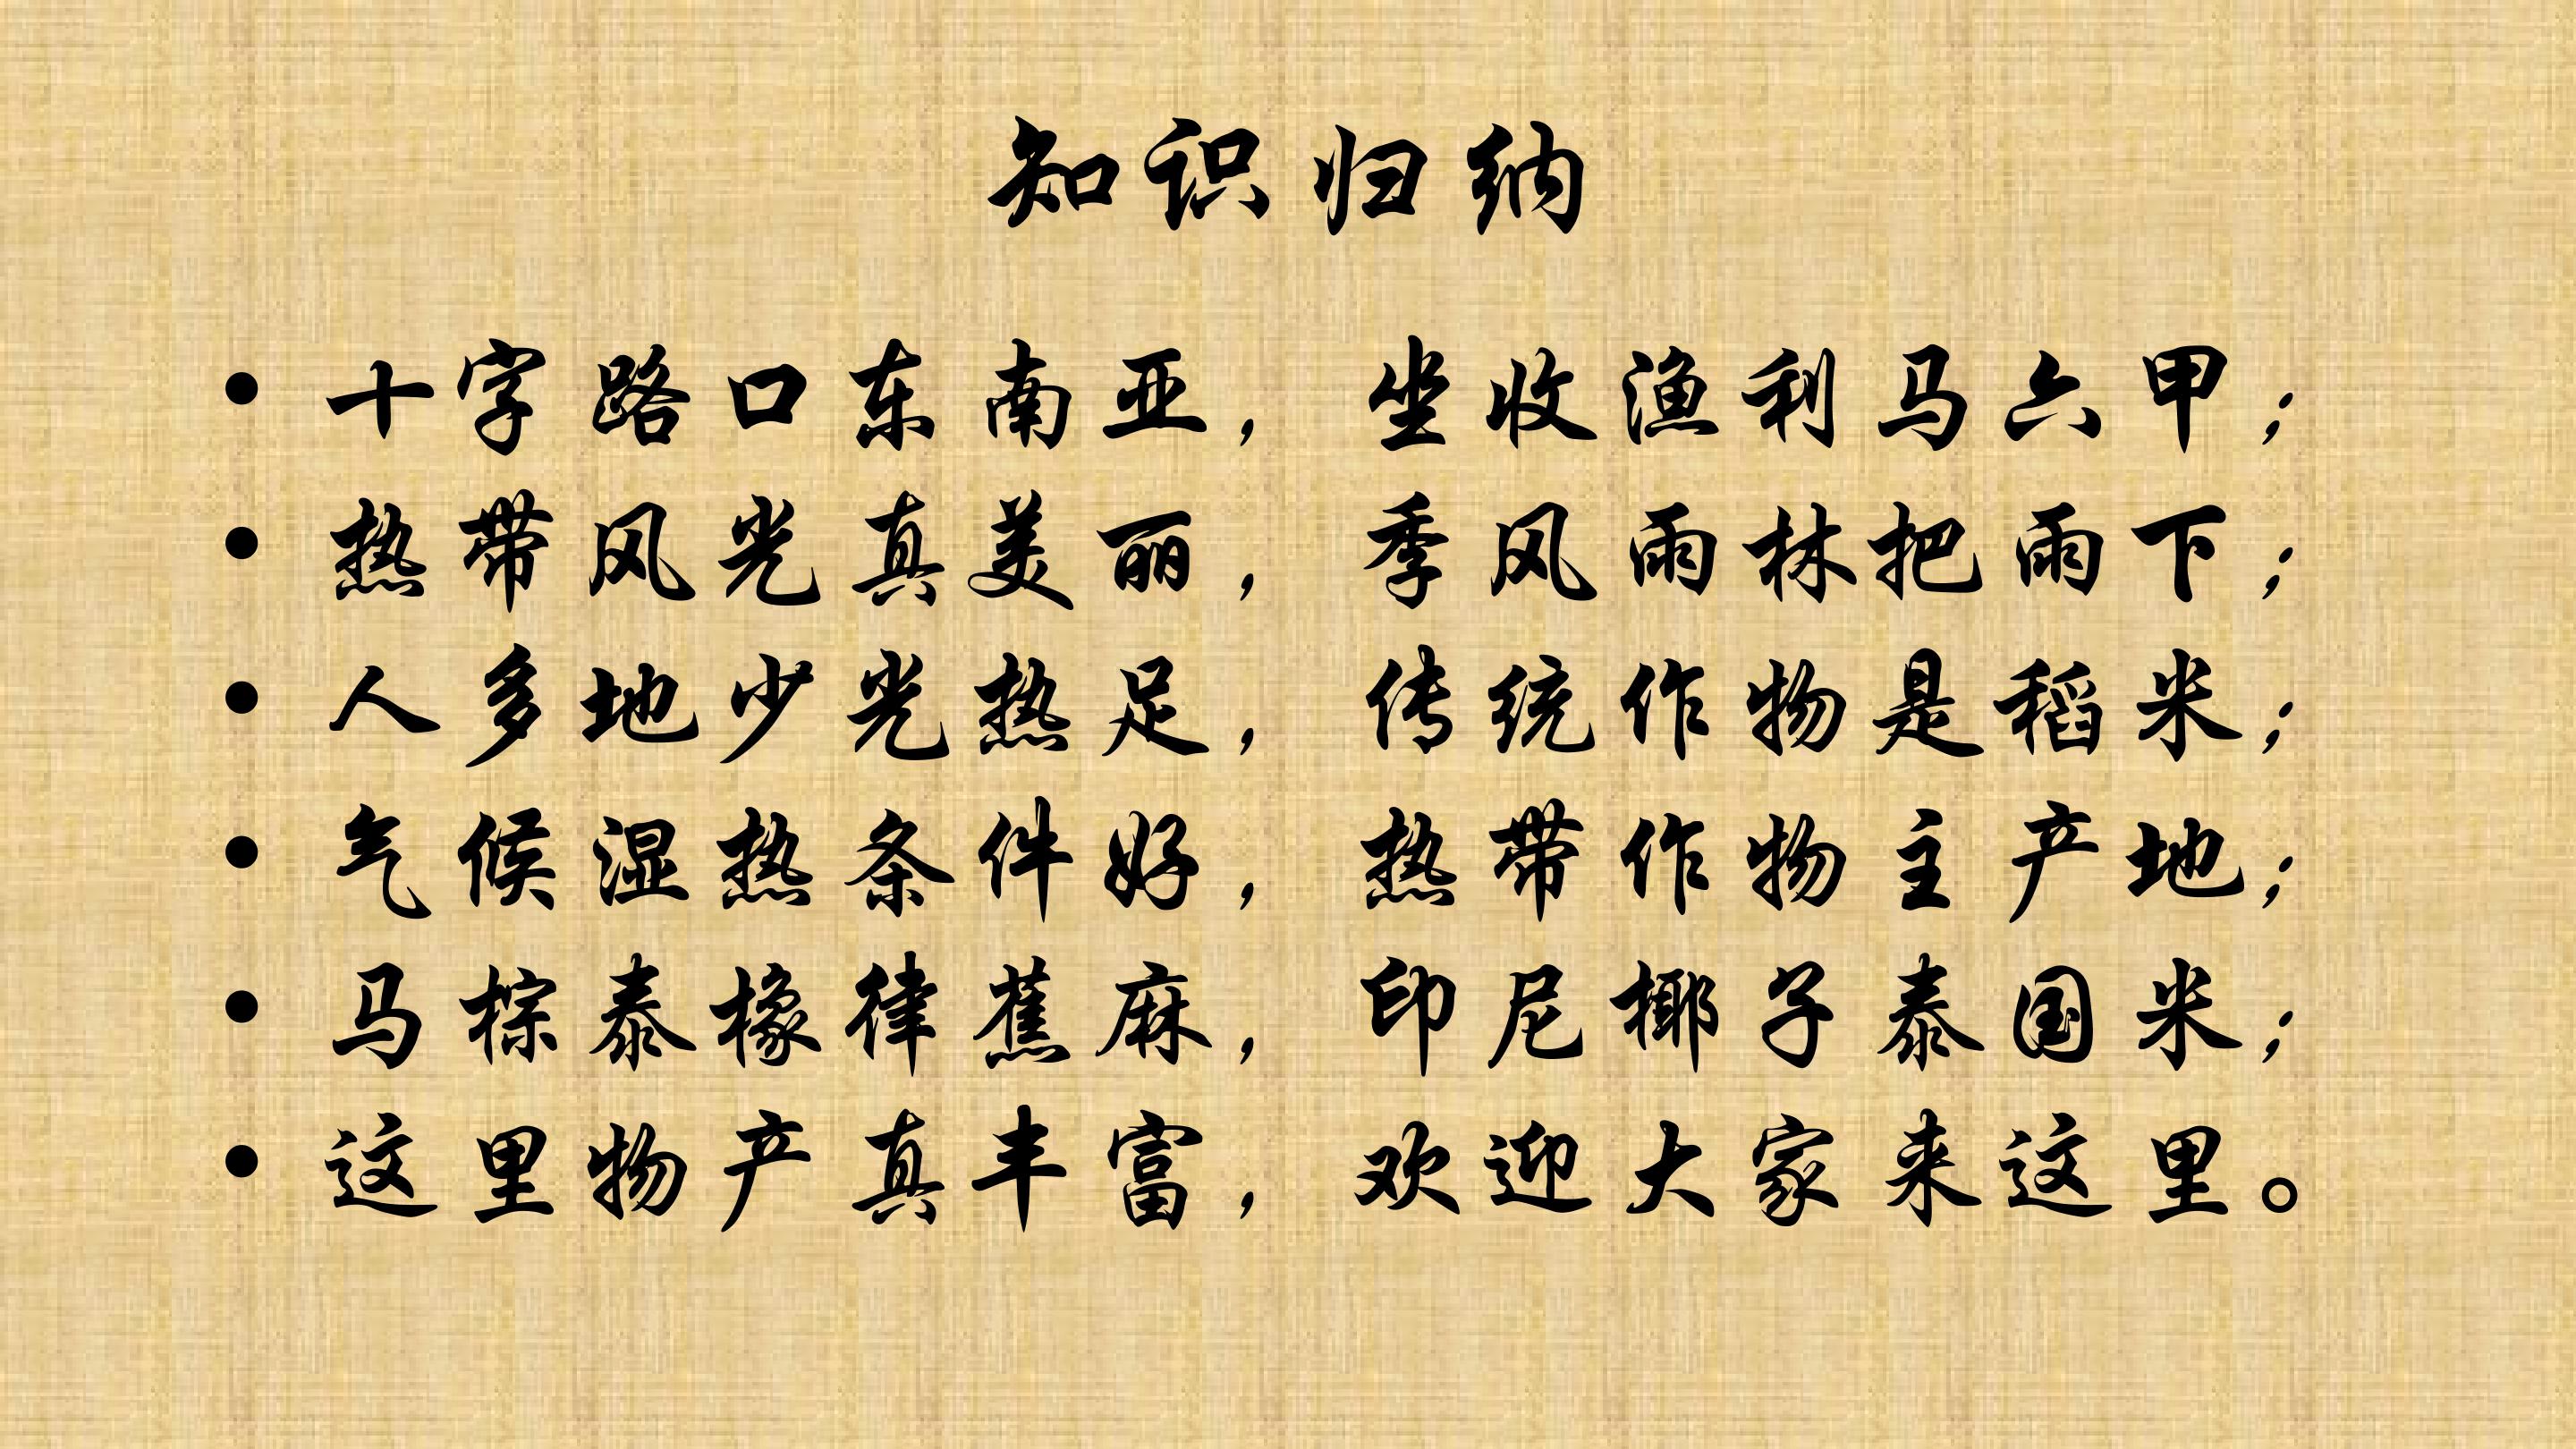 知识归纳
• 十字路口东南亚，坐收渔利马六甲；
• 热带风光真美丽，季风雨林把雨下；
• 人多地少光热足，传统作物是稻米；
• 气候湿热条件好，热带作物主产地；
• 马棕泰橡律蕉麻，印尼椰子泰国米；
• 这里物产真丰富，欢迎大家来这里。